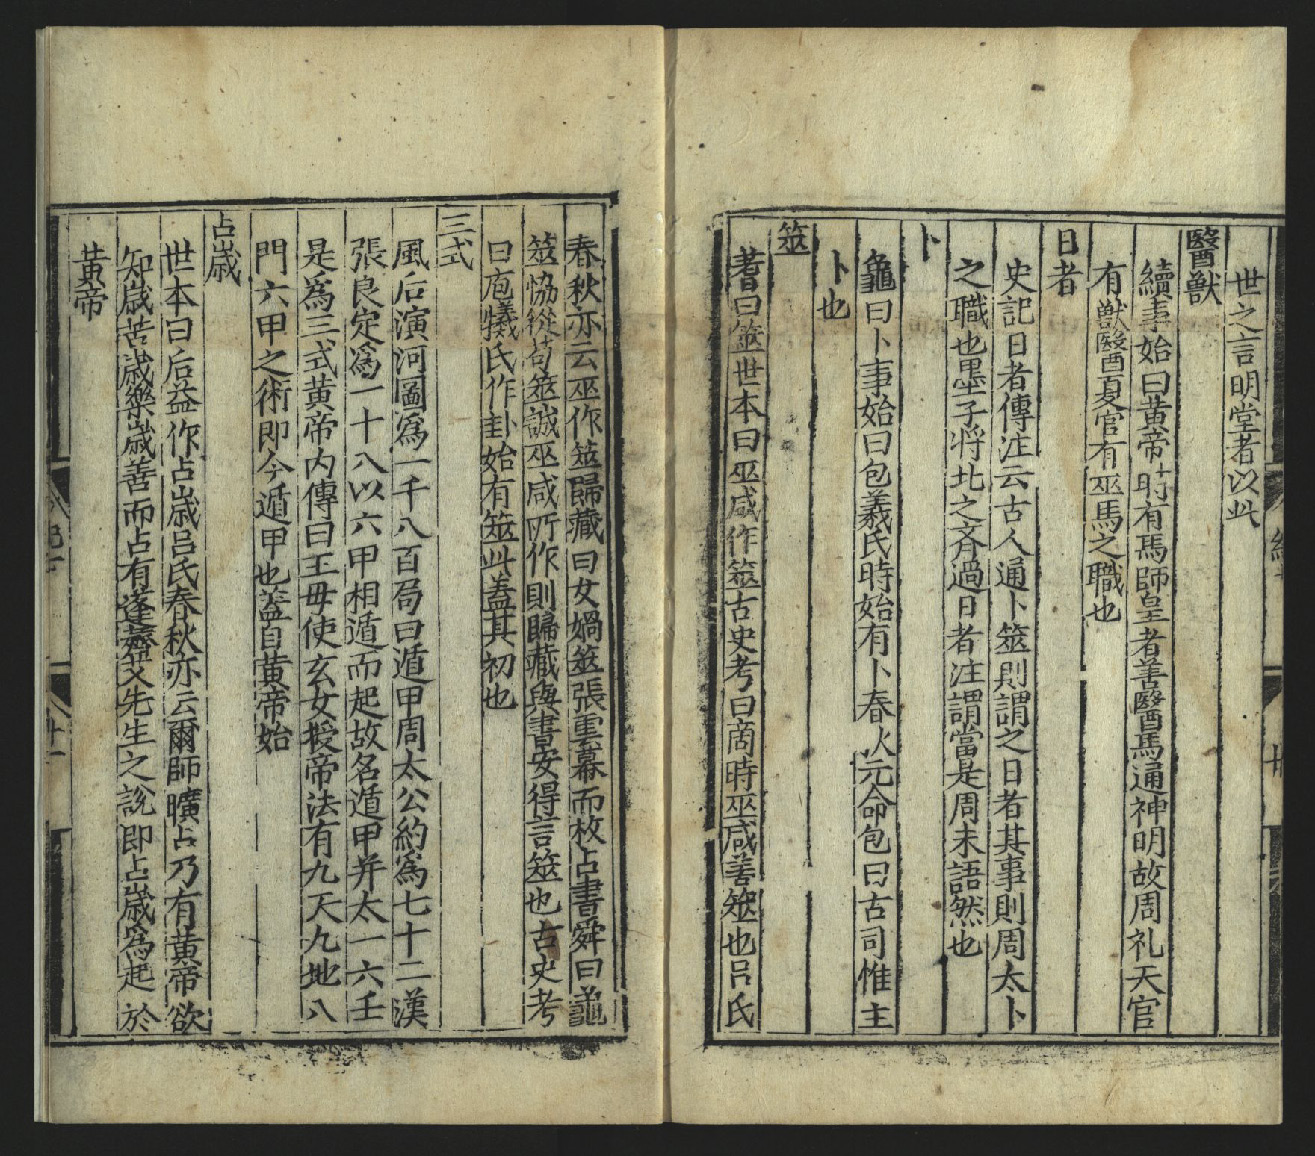 世之言明堂者以此
醫獸
續事始曰黃帝時有馬師皇者善醫馬通神明故周礼天官
有獸醫夏官有巫馬之職也
日者
史記日者傳注云古人通卜筮則謂之日者其事則周太卜
之職也墨子将北之齊過日者注謂當是周末語然也
卜
龜曰卜事始曰包羲氏時始有卜春火元命包曰古司惟主
卜也
筮
蓍曰筮世本曰巫咸作筮古史考曰商時巫咸善筮也吕氏
春秋亦云巫作筮歸藏曰女媧筮張雲幕而枚占書舜曰龜
筮恊從苟筮誠巫咸所作則歸藏與書安得言筮也古史考
曰庖犧氏作卦始有筮此蓋其初也
三式
風后演河圖爲一千八百局曰遁甲周太公約爲七十二漢
張良定爲一十八以六甲相遁而起故名遁甲并太一六壬
是爲三式黄帝内傳曰王毋使玄女授帝法有九天九地八
門六甲之術即今遁甲也蓋自黄帝始
占歳
世本曰后益作占歳吕氏春秋亦云爾師曠占乃有黄帝欲
知歳苦歳樂歳善而占有蓬先生之說即占歳爲起於
黄帝